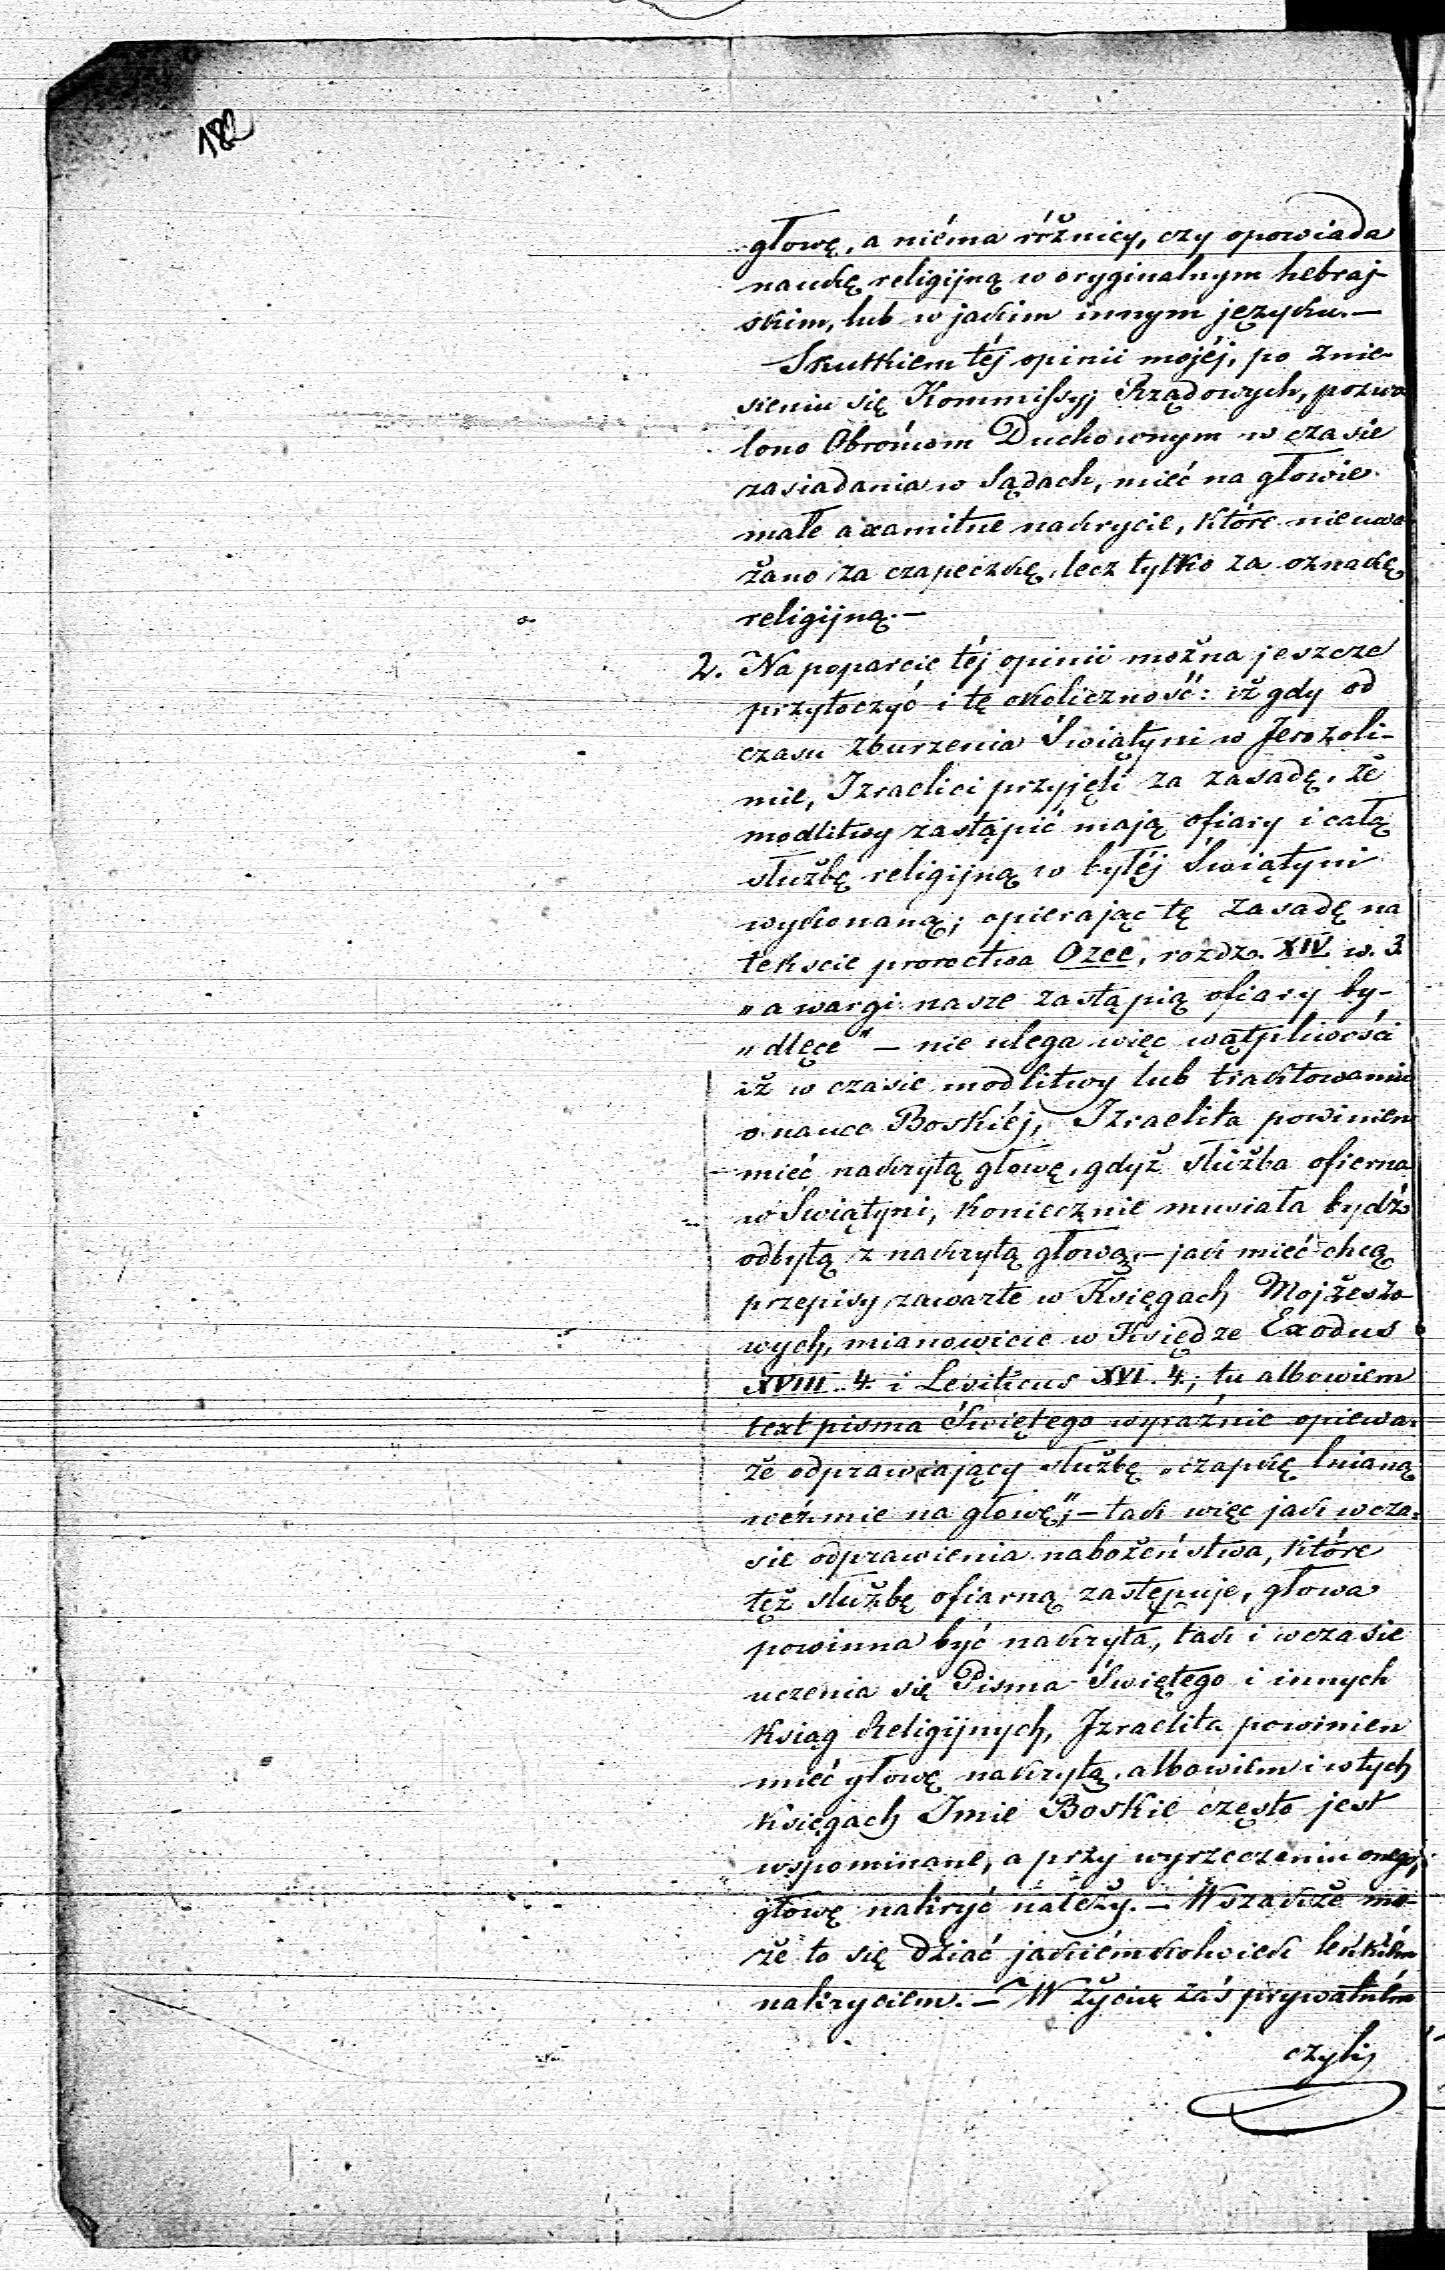 182
głowę, a niéma różnicy, czy opowiada
naukę religijną w oryginalnym hebraj-
skim, lub w jakim innym języku. —
Skutkiem téj opinii mojéj, po znie-
sieniu się Kommissyj Rządowych, pozwo
lono Obrońcom Duchownym w czasie
zasiadania w Sądach, mieć na głowie
małe axamitne nakrycie, które nieuwa
żano za czapeczkę, lecz tylko za oznakę
religijną. —
2. Na poparcie téj opinii można jeszcze
przytoczyć i tę okoliczność: iż gdy od
czasu zburzenia Świątyni w Jerozoli-
mie, Izraelici przyjęli za zasadę, że
modlitwy zastąpić mają ofiary i całą
służbę religijną w byłéj Świątyni
wykonaną; opierając tę zasadę na
tekscie proroctwa Ozee, rozdz. XIV w. 3
„a wargi nasze zastąpią ofiary by-
„dlęce" — nie ulega więc wątpliwości
iż w czasie modlitwy lub traktowania
o nauce Boskiéj, Izraelita powinien
mieć nakrytą głowę, gdyż służba ofierna
w Świątyni, koniecznie musiała bydź
odbytą z nakrytą głową, — jak mieć chcą
przepisy zawarte w Księgach Mojżeszo-
wych, mianowicie w Księdze Exodus
XVIII. 4. i Leviticus XVI. 4.; tu albowiem
text pisma Świętego wyraźnie opiewa,
że odprawiający służbę „czapkę lnianą
weźmie na głowę"; — tak więc jak w cza-
sie odprawienia nabożeństwa, które
też służbę ofiarną zastępuje, głowa
powinna być nakryta, tak i w czasie
uczenia się Pisma Świętego i innych
ksiąg Religijnych, Izraelita powinien
mieć głowę nakrytą, albowiem i w tych
księgach Imie Boskie często jest
wspominane, a przy wyrzeczeniu onego,
głowę nakryć należy. — Wszakże mo-
że to się dziać jakiémkolwiek lekkiém
nakryciem. — W życiu zaś prywatném
czyli